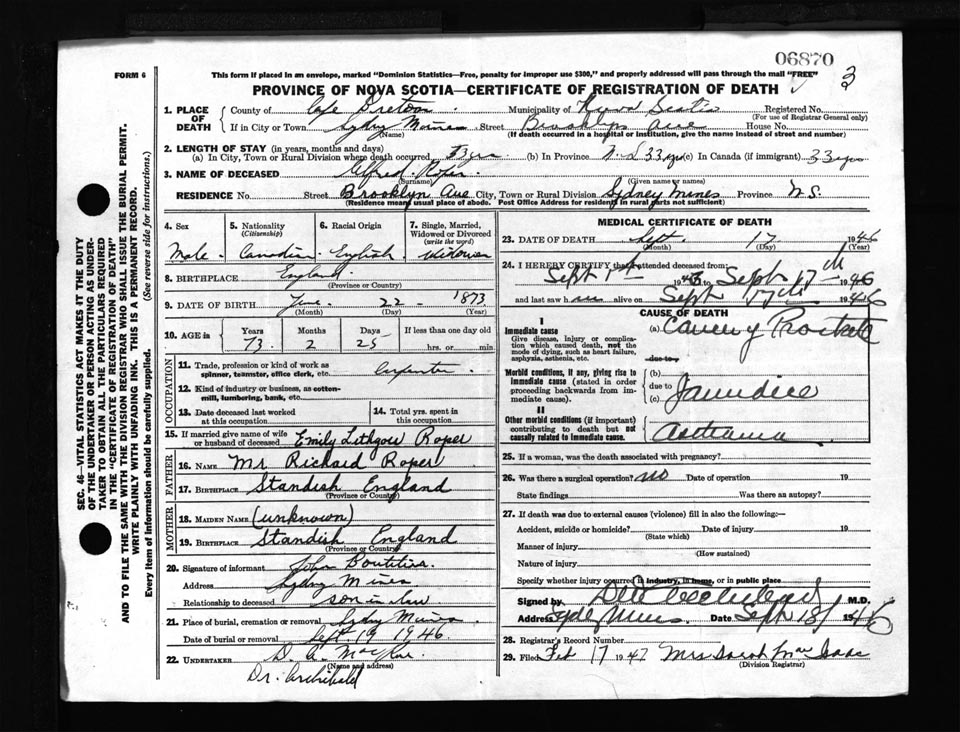 06870
3
FORM 6
This form if placed in an envelope, marked "Dominion Statistics—Free, penalty for improper use $300," and properly addressed will pass through the mail "FREE"
PROVINCE OF NOVA SCOTIA—CERTIFICATE OF REGISTRATION OF DEATH
1. PLACE OF DEATH
County of Cape Breton Municipality of Nova Scotia Registered No.
(For use of Registrar General only)
If in City or Town Sydney Mines Street Brooklyn Ave House No.
(Name) (If death occurred in a hospital or institution, give the name instead of street and number)
2. LENGTH OF STAY (in years, months and days)
(a) In City, Town or Rural Division where death occurred (b) In Province N.S 33 yrs (c) In Canada (if immigrant) 33 yrs
3. NAME OF DECEASED Alfred Roper
(Surname) (Given name or names)
RESIDENCE No. Street Brooklyn Ave City, Town or Rural Division Sydney Mines Province N.S.
(Residence means usual place of abode. Post Office Address for residents in rural parts not sufficient)
4. Sex
Male
5. Nationality
(Citizenship)
Canadian
6. Racial Origin
English
7. Single, Married, Widowed or Divorced
(write the word)
Widower
8. BIRTHPLACE England
(Province or Country)
9. DATE OF BIRTH June 22 1873
(Month) (Day) (Year)
10. AGE in
Years Months Days If less than one day old
73 2 25 hrs. or min.
OCCUPATION
11. Trade, profession or kind of work as spinner, teamster, office clerk, etc. Carpenter
12. Kind of industry or business, as cotton-mill, lumbering, bank, etc.
13. Date deceased last worked at this occupation
14. Total yrs. spent in this occupation
15. If married give name of wife or husband of deceased Emily Lethgow Roper
FATHER
16. NAME Mr Richard Roper
17. BIRTHPLACE Standish England
(Province or Country)
MOTHER
18. MAIDEN NAME (unknown)
19. BIRTHPLACE Standish England
(Province or Country)
20. Signature of informant John Boutilier
Address Sydney Mines
Relationship to deceased son in law
21. Place of burial, cremation or removal Sydney Mines
Date of burial or removal Sept 19 1946.
22. UNDERTAKER D. A.
(Name and address)
Dr. Archibald
MEDICAL CERTIFICATE OF DEATH
23. DATE OF DEATH Sept. 17 1946
(Month) (Day) (Year)
24. I HEREBY CERTIFY that I attended deceased from:
Sept 1st 1946 to Sept 17th 1946
and last saw him alive on Sept 17th 1946
CAUSE OF DEATH
I
Immediate cause
Give disease, injury or complication which caused death, not the mode of dying, such as heart failure, asphyxia, asthenia, etc.
(a) Cancer of Prostate
due to
Morbid conditions, if any, giving rise to immediate cause (stated in order proceeding backwards from immediate cause).
(b)
due to
(c) Jaundice
II
Other morbid conditions (if important) contributing to death but not causally related to immediate cause.
25. If a woman, was the death associated with pregnancy?
26. Was there a surgical operation? no Date of operation 19
State findings Was there an autopsy?
27. If death was due to external causes (violence) fill in also the following:—
Accident, suicide or homicide? Date of injury 19
(State which)
Manner of injury
(How sustained)
Nature of injury
Specify whether injury occurred in industry, in home, or in public place
Signed by M.D.
Address Sydney Mines. Date Sept 18/ 1946
28. Registrar's Record Number
29. Filed Feb 17 1947 Mrs Sarah Mac Isaac
(Division Registrar)
SEC. 46—VITAL STATISTICS ACT MAKES IT THE DUTY
OF THE UNDERTAKER OR PERSON ACTING AS UNDER-
TAKER TO OBTAIN ALL THE PARTICULARS REQUIRED
IN THE "CERTIFICATE OF REGISTRATION OF DEATH"
AND TO FILE THE SAME WITH THE DIVISION REGISTRAR WHO SHALL ISSUE THE BURIAL PERMIT.
WRITE PLAINLY WITH UNFADING INK. THIS IS A PERMANENT RECORD.
Every item of information should be carefully supplied. (See reverse side for instructions.)